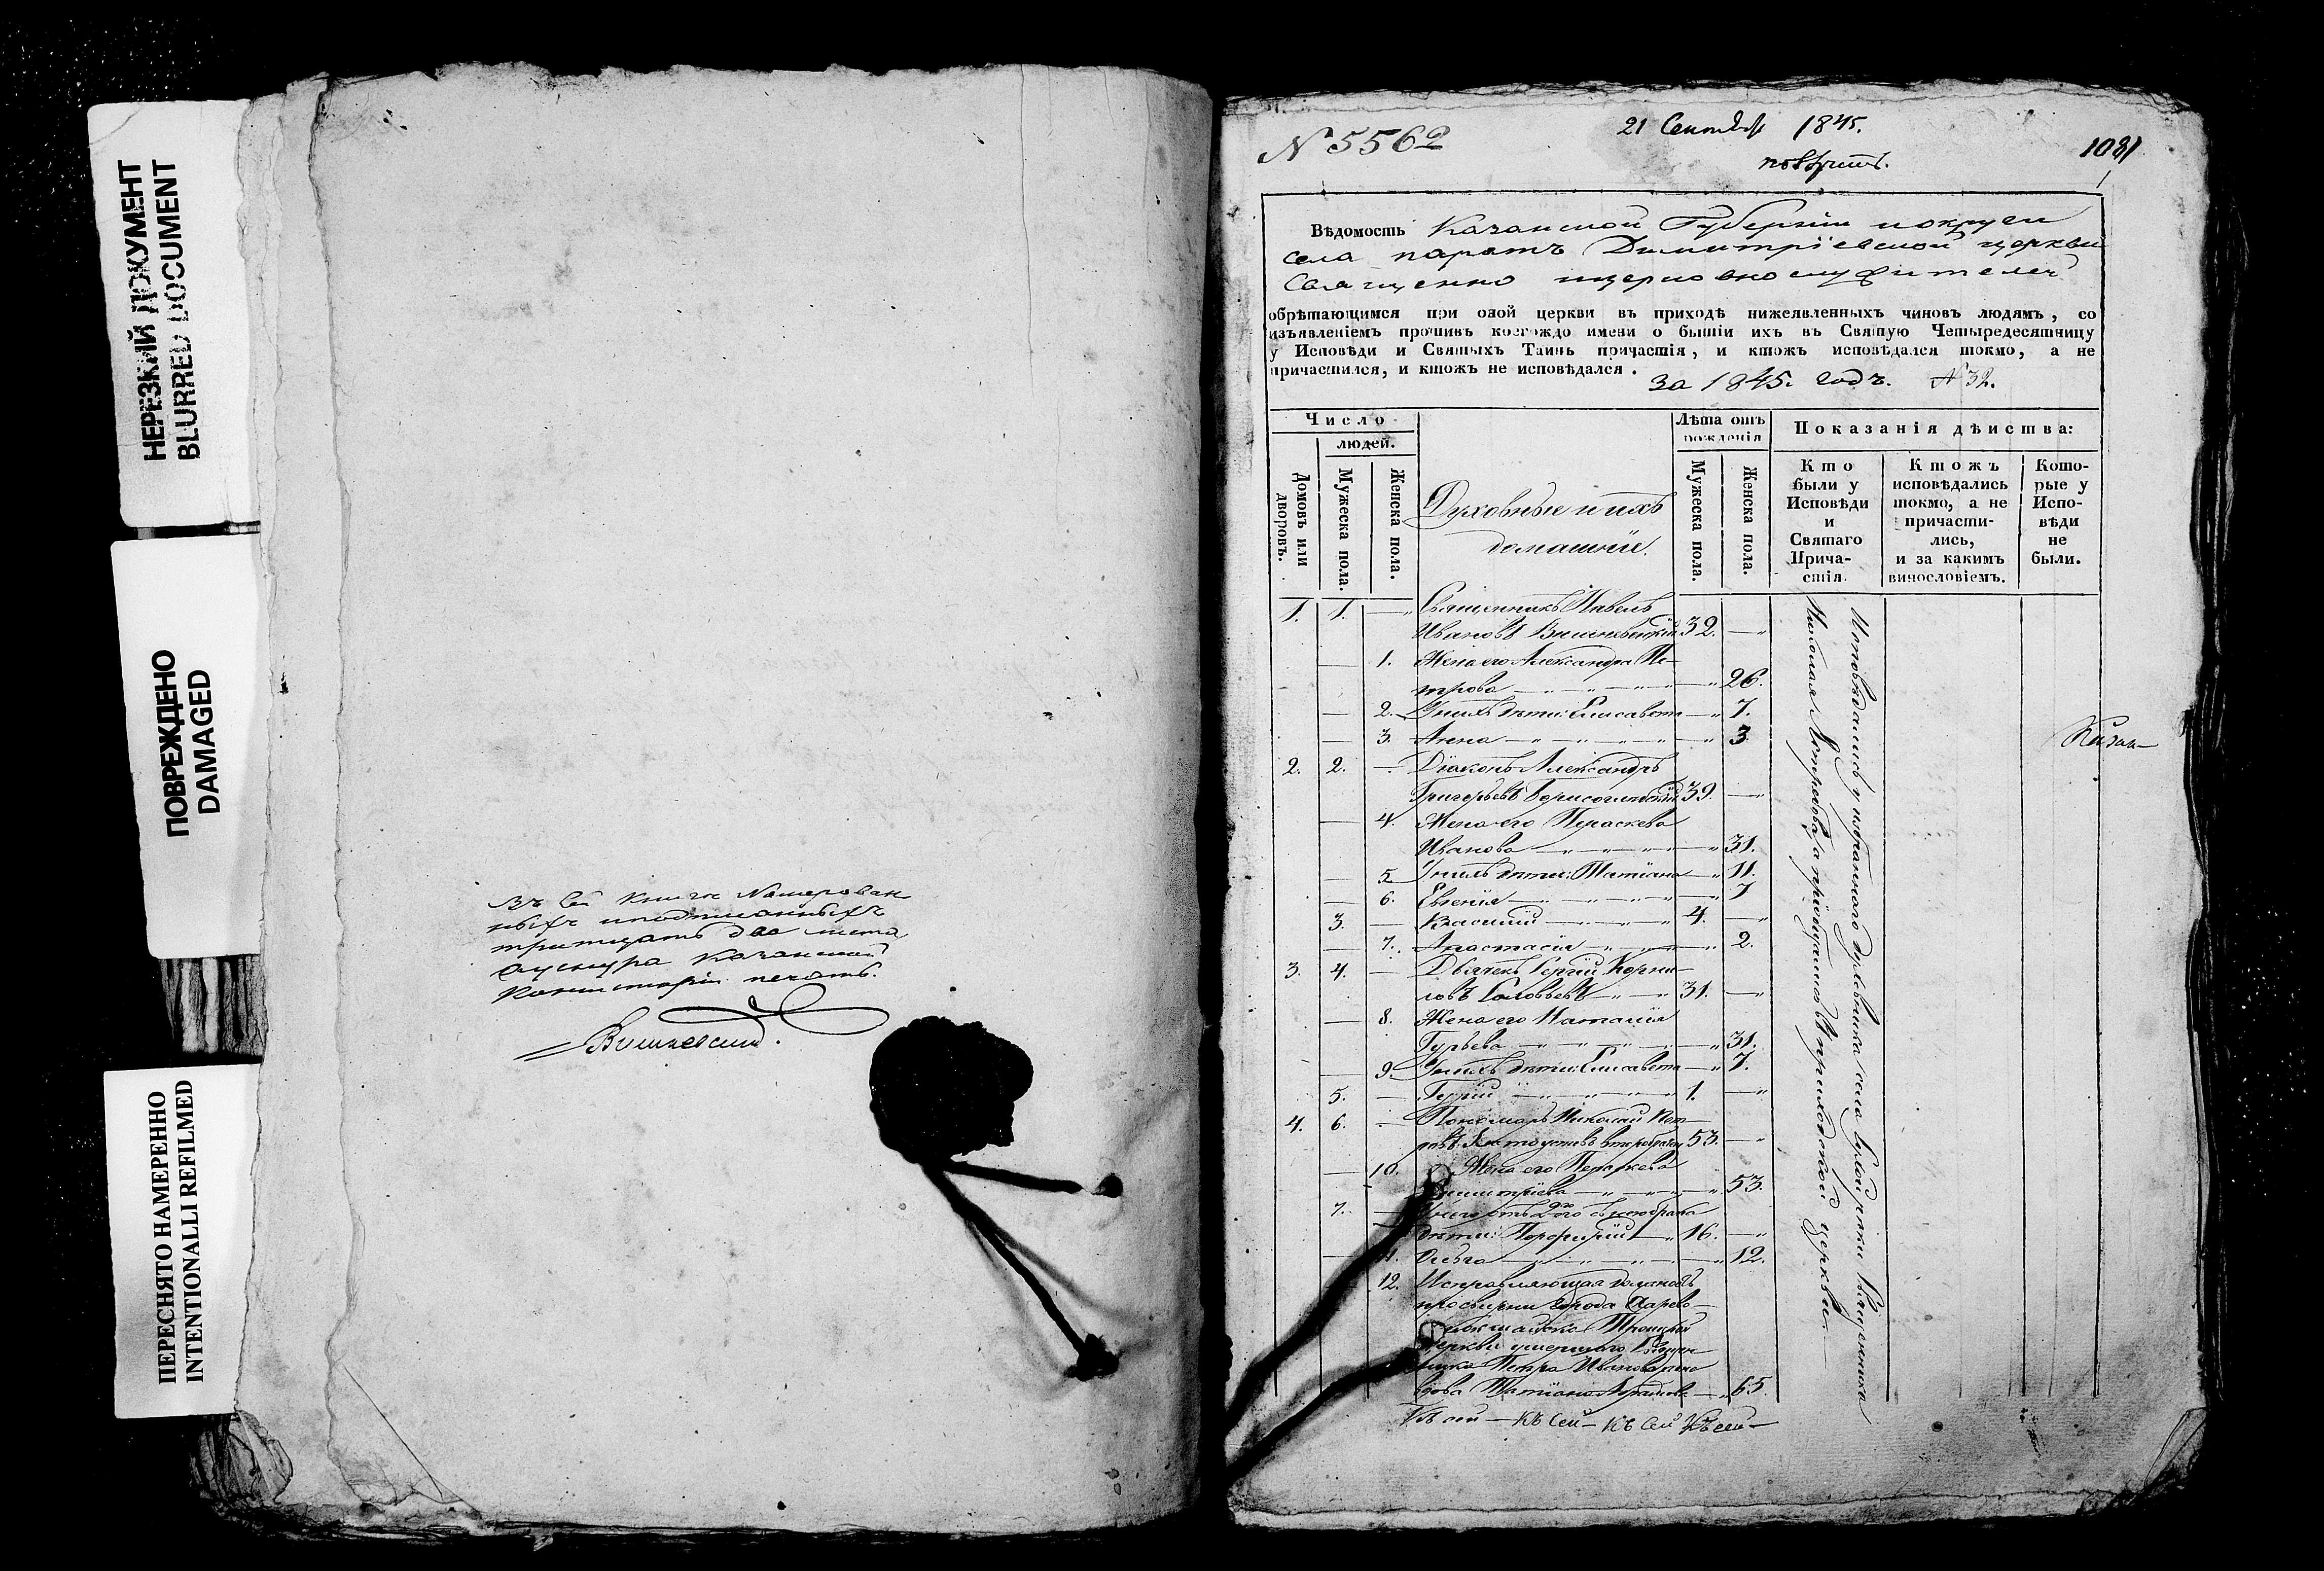 НЕРЕЗКИЙ ДОКУМЕНТ
BLURRED DOCUMENT
ПОВРЕЖДЕНО
DAMAGED
ПЕРЕСНЯТО НАМЕРЕННО
INTENTIONALLI REFILMED
Въ сей книге Номерован
ныхъ
тритцать два листа
Казанской
Консисторіи печать.
N 5562
21 Сентября 1845.
1081
Вѣдомость Казанской Губерніи и округи
села паратъ Димитріевской церкви
Священно ицерковнослужителей
обрѣтающимся при оной церкви въ приходѣ нижеявленныхъ чиновъ людямъ, со
изъявленіемъ противъ коегождо имени о бытіи ихъ въ Святую Четыредесятницу
у Исповѣди и Святыхъ Таинъ причастія, и ктожъ исповѣдался токмо, а не
причастился, и ктожъ не исповѣдался.
За 1845. годъ. N 32.
Число
людей.
Домовъ или дворовъ.
Мужеска пола.
Женска пола.
Духовные и ихъ
домашніе.
Лѣта отъ
рожденія
Мужеска пола.
Женска пола.
Показанія дѣйства:
Кто
были у
Исповѣди
и
Святаго
Прича-
стія.
Ктожъ
исповѣдались
токмо, а не
причасти-
лись,
и за какимъ
винословіемъ.
Кото-
рые у
Испо-
вѣди
не
были.
1. 1. — Священникъ Павелъ
Ивановъ Вишневскій 32. —
— 1. Жена его Александра Пе-
трова — 26.
— 2. У нихъ дѣти: Елисавета — 7.
— 3. Анна — 3.
2. 2. — Діаконъ Александръ
Григорьевъ Борисоглебскій 39. —
— 4. Жена его Параскева
Иванова — 31.
— 5. У нихъ дѣти: Татіана — 11.
— 6. Евгенія — 7
3. — Василій 4. —
— 7. Анастасія — 2.
3. 4. — Дьячекъ Сергій Корни-
ловъ Соловьевъ 31. —
— 8. Жена его Наталія
Гурьева — 31.
— 9. У нихъ дѣти: Елисавета — 7.
5. — Гурій 1. —
4. 6. — Пономарь Николай Пет-
ровъ 53. —
— 10. Жена его Параскева
Димитріева — 53.
7. — У него отъ 2го брака
дѣти: Порфирій 16. —
— 11. Ольга — 12.
12. Исправляющая должность
просвирни города Царево-
кокшайска Троицкой
Церкви умершаго
Петра Иванова жена
вдова Татіана — 65.
Исповѣдались у избраннаго духовника села Священника
Николая и пріобщались въ приходской церкви
Казан—
Къ сей — Къ сей — Къ сей Къ сей —